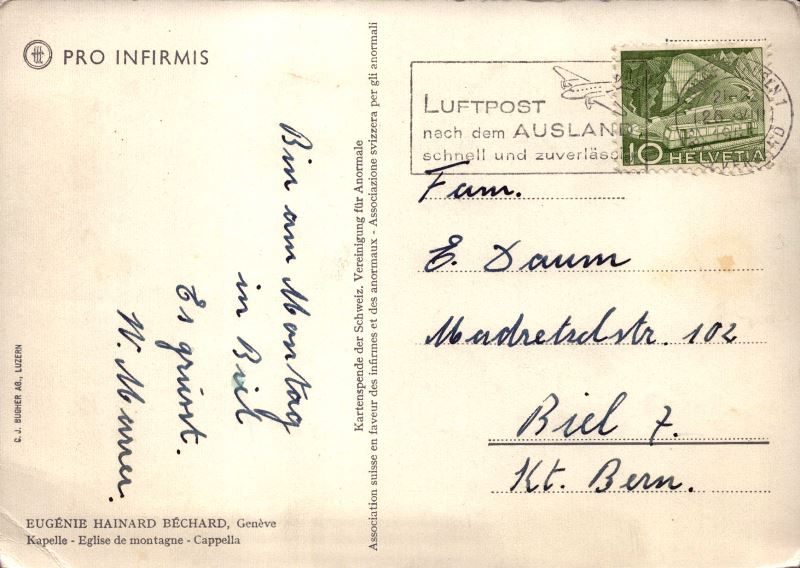 PRO INFIRMIS
Bin am Montag
in Biel
Es grüsst.
W. Maurer.
C. J. BUCHER AG., LUZERN
EUGÉNIE HAINARD BÉCHARD, Genève
Kapelle - Eglise de montagne - Cappella
Kartenspende der Schweiz. Vereinigung für Anormale
Association suisse en faveur des infirmes et des anormaux - Associazione svizzera per gli anormali
LUFTPOST
nach dem AUSLAND
schnell und zuverläss
10 HELVETIA
Fam.
E. Daum
Madretschstr. 102
Biel 7.
Kt. Bern.